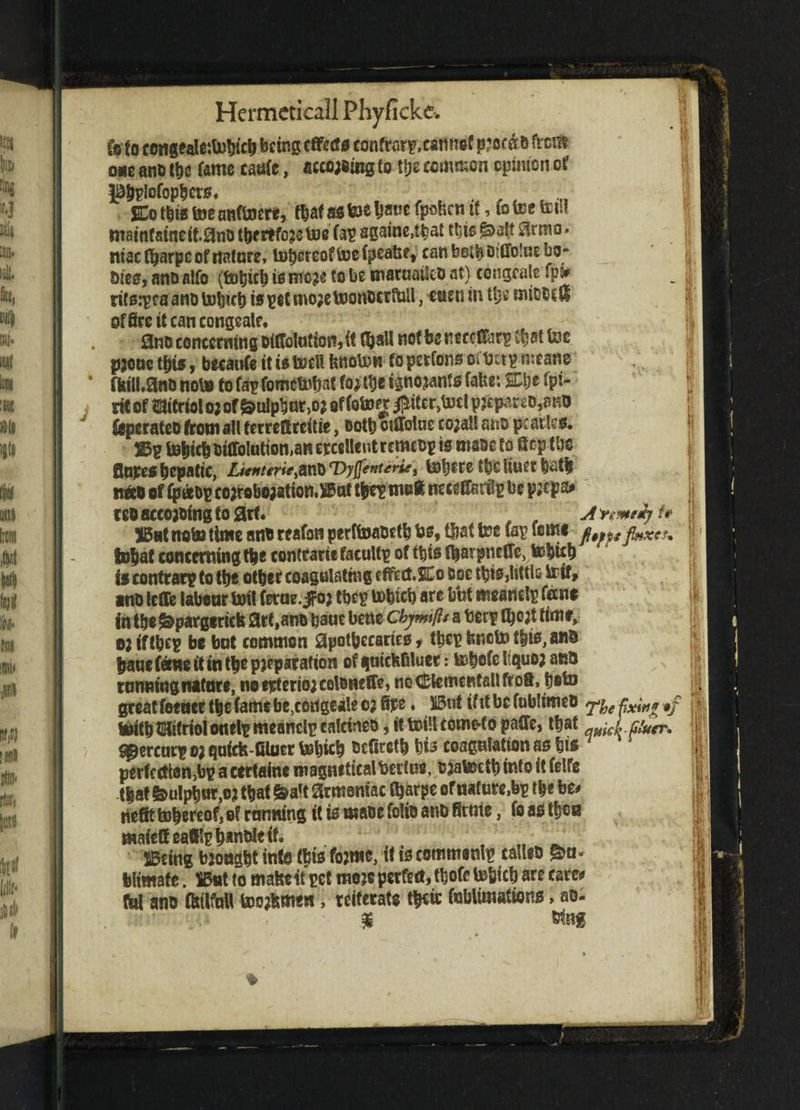 Hermeticall Phyſicke.
ſo to congeale: which being effects contrary, cannot procéed from
one and the ſame cauſe, according to the common opinion of
Phyloſophers.
To this we anſwere, that as we haue ſpoken it, ſo we will
maintaine it. And therefore we ſay againe, that this Salt Armo-
niac ſharpe of nature, whereof we ſpeake, can both diſſolue bo-
dies, and alſo (which is more to be maruailed at) congeale ſpi-
rits: yea and which is yet more wonderfull, euen in the middeſt
of fire it can congeale.
And concerning diſſolution, it ſhall not be neceſſary that we
proue this, becauſe it is well knowne to perſons of very meane
ſkill. And now to ſay ſomewhat for the ignorants ſake: The ſpi-
rit of Vitriol or of Sulphur, or of ſower Niter, wel prepared, and
ſeperated from all terreſtreitie, doth diſſolue corall and pearles.
By which diſſolution, an excellent remedy is made to ſtop the
fluxes hepatic, Lienterie, and Dyſſenterie, where the liuer hath
néed of ſpéedy corroboration. But they muſt neceſſarily be prepa-
red according to Art.
A remedy to
ſtoppe fluxes.
But now time and reaſon perſwadeth vs, that we ſay ſome
what concerning the contrarie faculty of this ſharpneſſe, which
is contrary to the other coagulating effect. To doe this, little wit,
and leſſe labour wil ſerue. For they which are but meanely ſéene
in the Spargerick Art, and haue bene Chymiſts a very ſhort time,
or if they be but common Apothecaries, they know this, and
haue ſéene it in the preparation of quickſiluer: whoſe liquor and
running nature, no exterior coldneſſe, no Elementall froſt, how
great ſoeuer the ſame be, congeale or fixe. But if it be ſublimed
The fixing of
quick-ſiluer.
with Vitriol onely meanely calcined, it will come to paſſe, that
Mercury or quick-ſiluer which deſireth his coagulation as his
perfection, by a certaine magnetical vertue, draweth into it ſelfe
that Sulphur, or that Salt Armoniac ſharpe of nature, by the be-
nefit whereof, of running it is made ſolid and firme, ſo as thou
maieſt eaſily handle it.
Being brought into this forme, it is commonly called Su-
blimate. But to make it yet more perfect, thoſe which are care-
ful and ſkilfull workmen, reiterate their ſublimations, ad-
X
ding